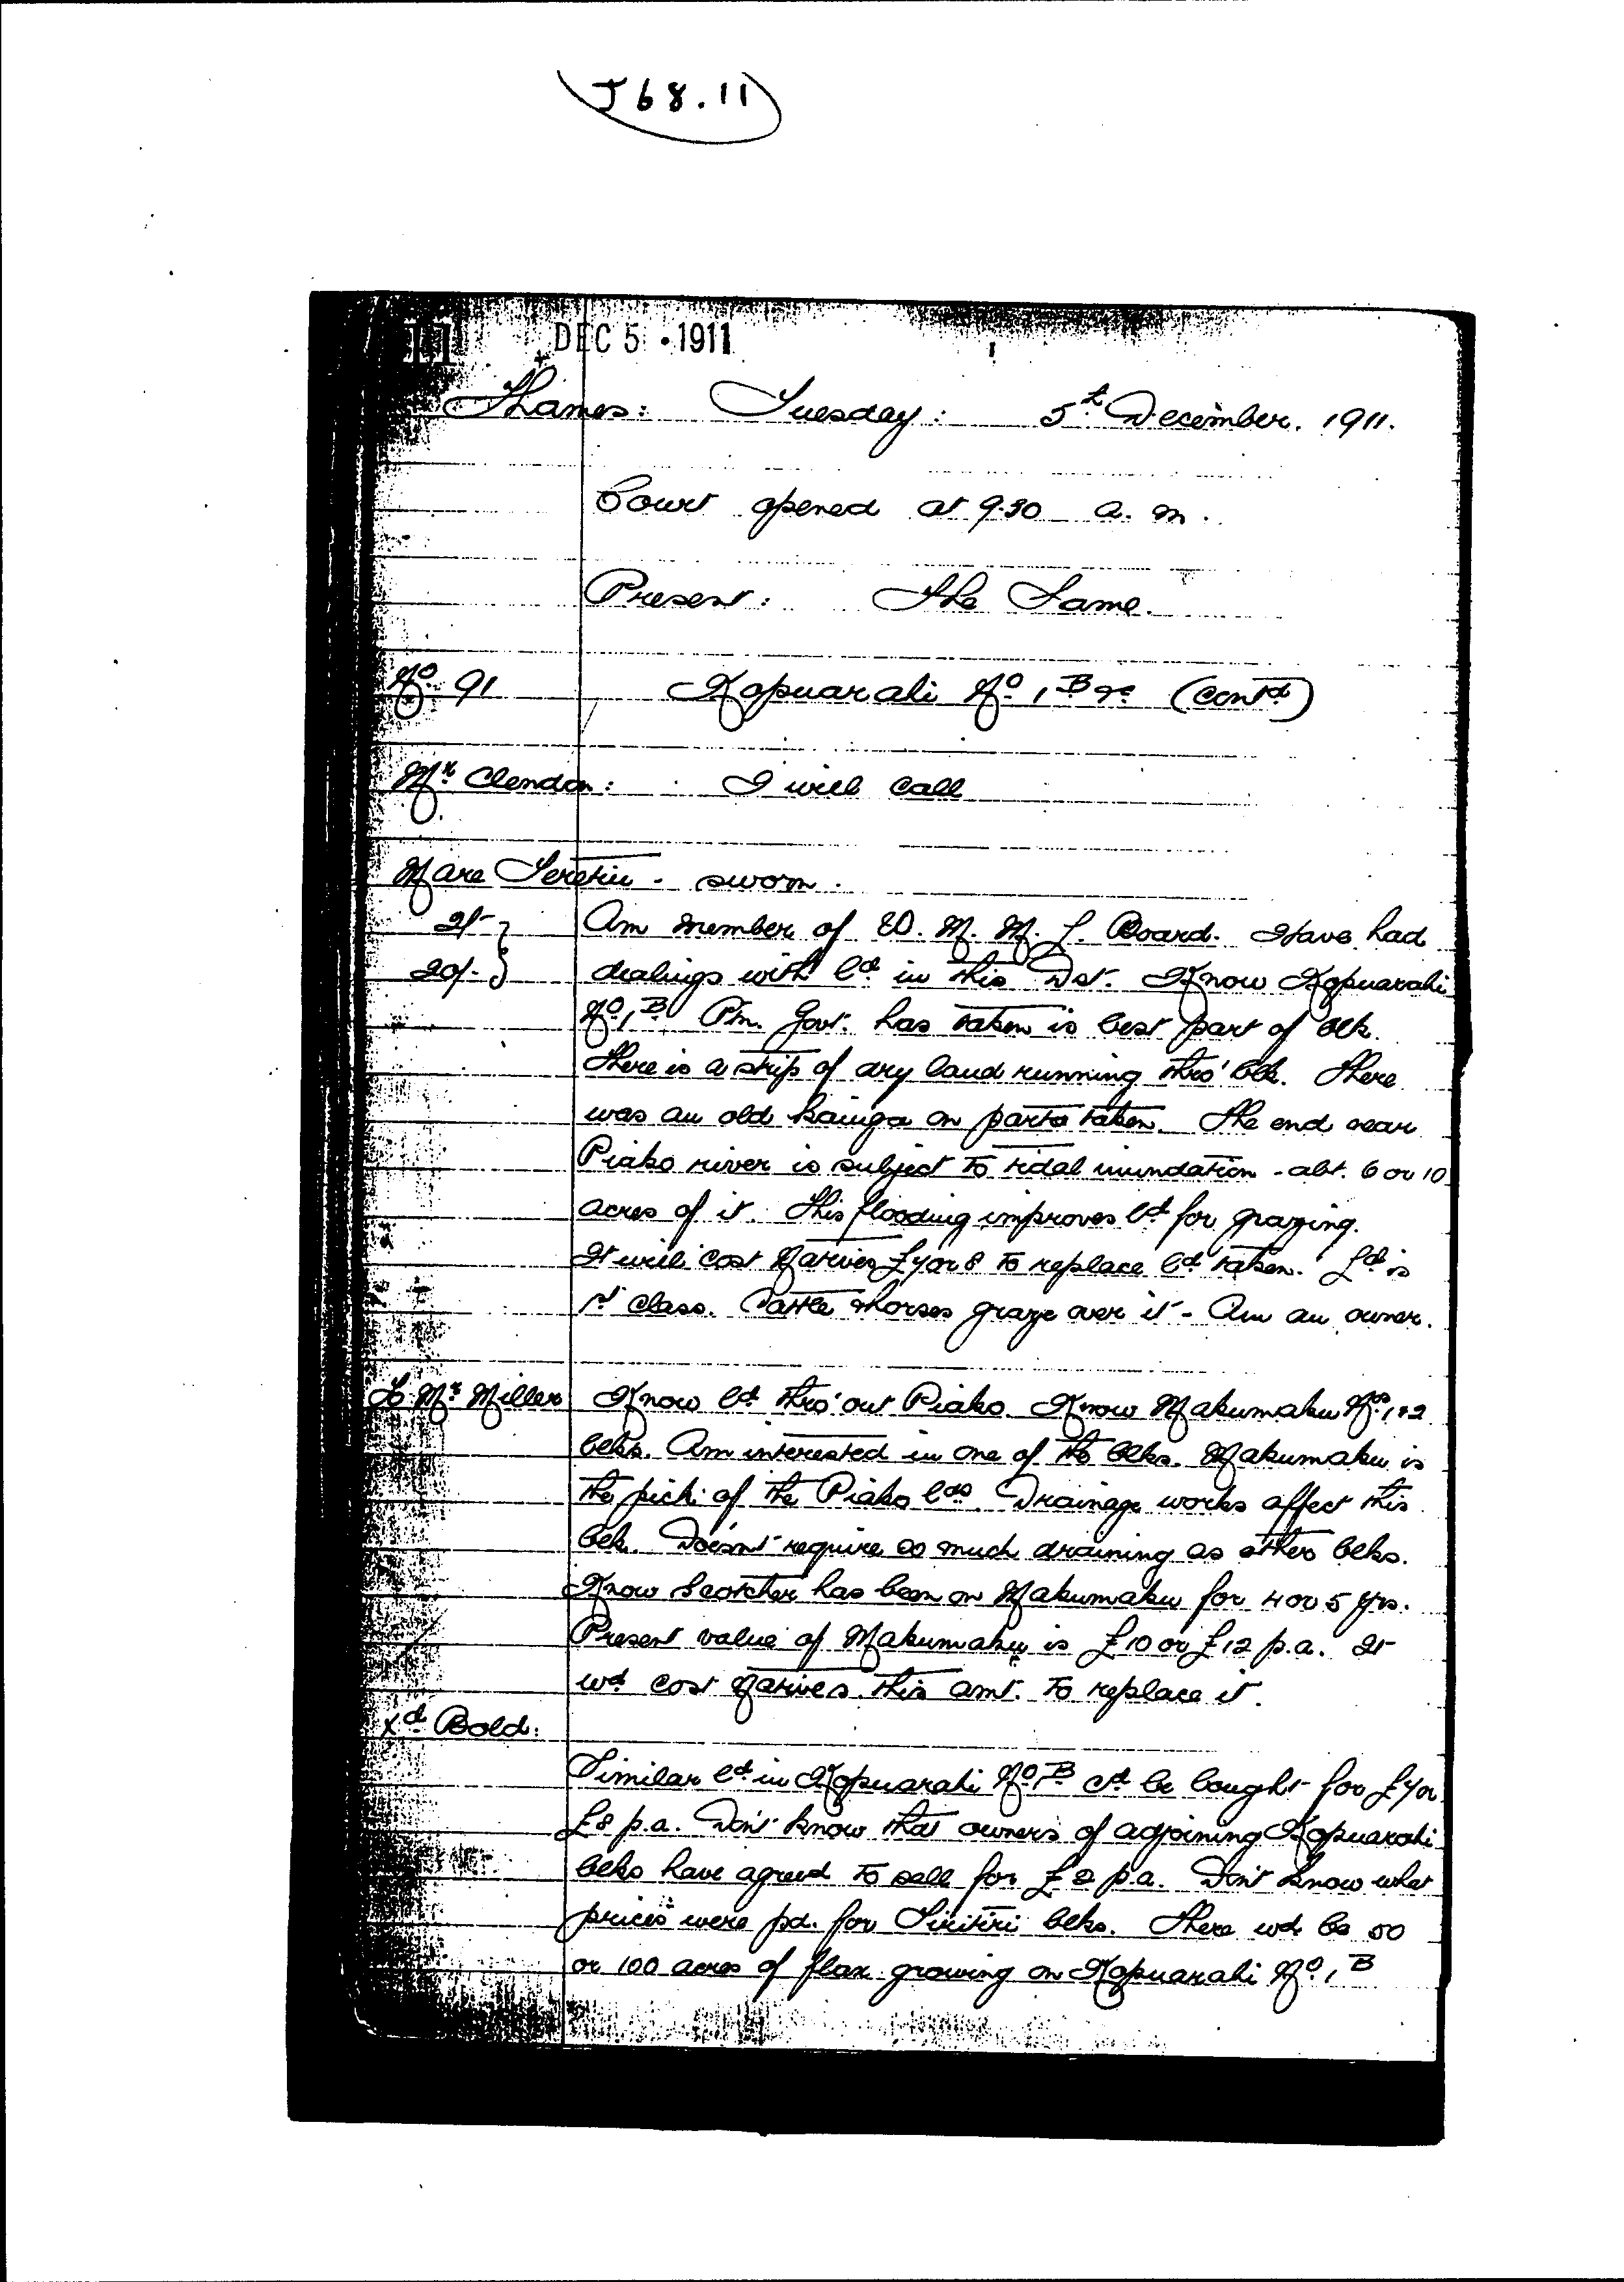 J 68.11
11 DEC 5 • 1911
Thames: Tuesday: 5th December. 1911.
Court opened at 9.30 a.m.
Present: The Same.
No. 91 Kopuarahi No 1B &c (contd)
Mr Clendon: I will call
Mare Teretiu - sworn.
2/- } Am member of W. M. M. L. Board. Have had
20/- } dealings with ld in this Dst. Know Kopuarahi
No 1B Ptn. Govt. has taken is best part of blk.
There is a strip of dry land running thro' blk. There
was an old kainga on parts taken. The end near
Piako river is subject to tidal inundation - abt. 6 or 10
acres of it. This flooding improves ld for grazing.
It will cost Natives £7 or 8 to replace ld taken. Ld is
1st class. Cattle & horses graze over it - Am an owner.
To Mr Miller Know ld thro'out Piako. Know Makumaku Nos 1 & 2
blks. Am interested in one of the blks. Makumaku is
the pick of the Piako lds. Drainage works affect this
blk. Doesn't require so much draining as other blks.
Know Scotcher has been on Makumaku for 4 or 5 yrs.
Present value of Makumaku is £10 or £12 p.a. It
wd cost Natives this amt. to replace it.
Xd Bold:
Similar ld in Kopuarahi No 1B cd be bought for £7 or
£8 p.a. Don't know that owners of adjoining Kopuarahi
blks have agreed to sell for £2 p.a. Don't know what
prices were pd. for Tiritiri blks. There wd be 50
or 100 acres of flax growing on Kopuarahi No 1B